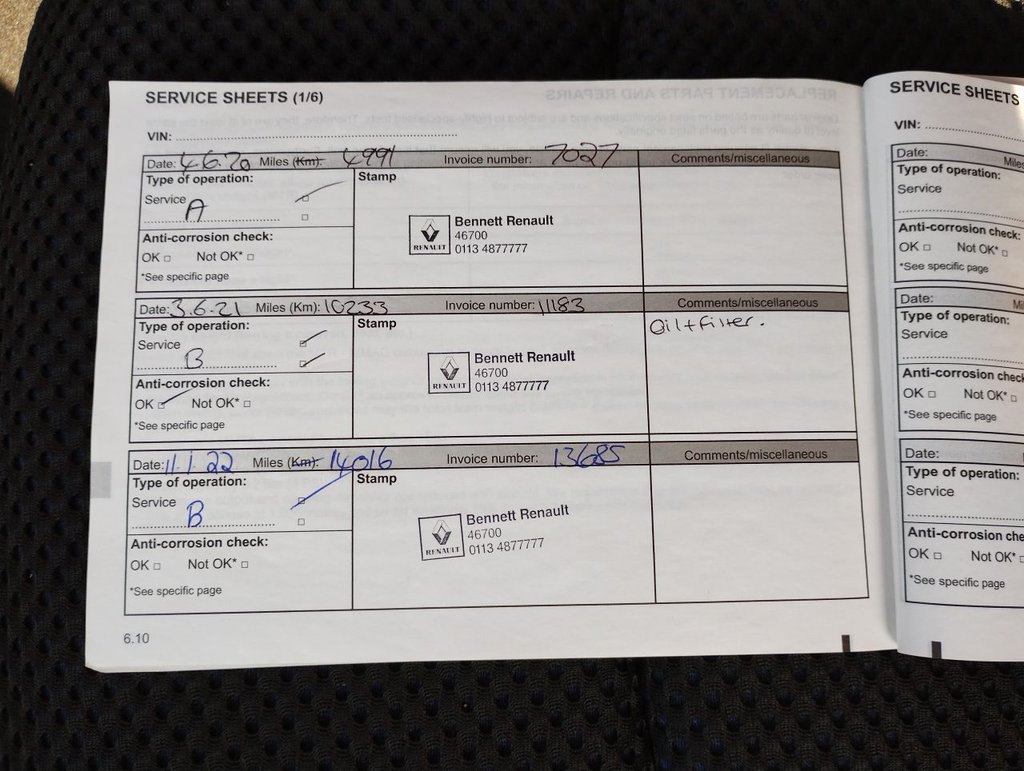 SERVICE SHEETS (1/6)
VIN:
Date: 4.6.20 Miles (Km): 4991 Invoice number: 7027 Comments/miscellaneous
Type of operation:
Stamp
Service
A
Bennett Renault
46700
0113 4877777
RENAULT
Anti-corrosion check:
OK Not OK*
*See specific page
Date: 3.6.21 Miles (Km): 10233 Invoice number: 11183 Comments/miscellaneous
Type of operation:
Stamp
Oil+filter.
Service
B
Bennett Renault
46700
0113 4877777
RENAULT
Anti-corrosion check:
OK Not OK*
*See specific page
Date: 11.1.22 Miles (Km): 14016 Invoice number: 13685 Comments/miscellaneous
Type of operation:
Stamp
Service
B
Bennett Renault
46700
0113 4877777
RENAULT
Anti-corrosion check:
OK Not OK*
*See specific page
6.10
SERVICE SHEETS
VIN:
Date: Miles
Type of operation:
Service
Anti-corrosion check:
OK Not OK*
*See specific page
Date:
Type of operation:
Service
Anti-corrosion check
OK Not OK*
*See specific page
Date:
Type of operation:
Service
Anti-corrosion che
OK Not OK*
*See specific page